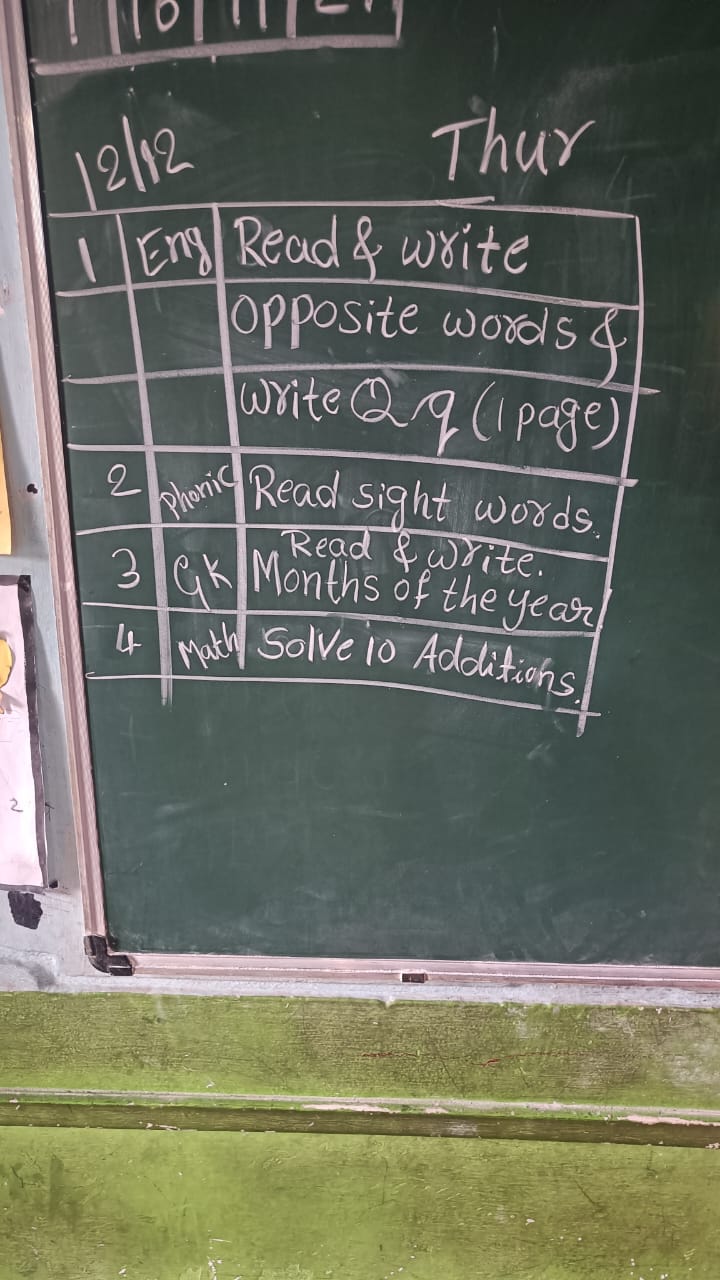 12/12 Thur
1 Eng Read & write
opposite words &
write Q q (1 page)
2 Phonic Read sight words.
3 GK Read & write.
Months of the year
4 Math Solve 10 Additions.
2